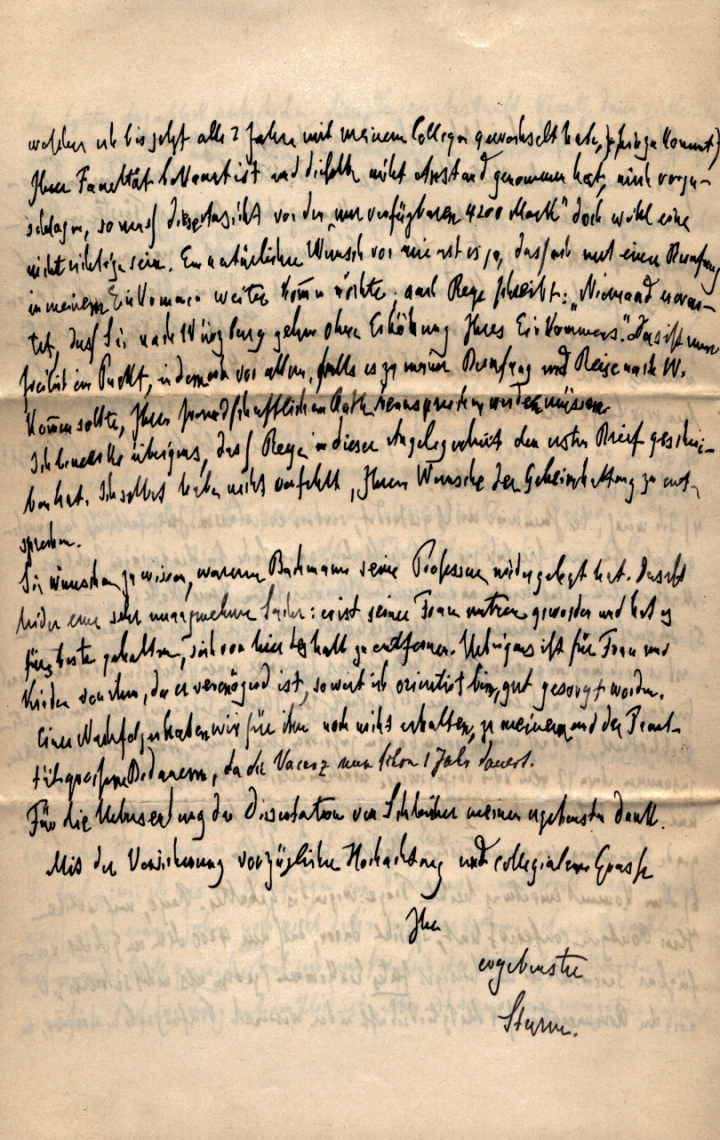 welchen ich bis jetzt alle 2 Jahre mit meinem Collegen gewechselt habe, hinzu kommt)
Ihrer Facultät bekannt ist und dieselbe nicht Anstand genommen hat, mich vorzu-
schlagen, so muss diese Ansicht von den „nur verfügbaren 4200 Mark“ doch wohl eine
nicht richtige sein. Ein natürlicher Wunsch von mir ist es ja, dass ich mit einer Berufung
in meinem Einkommen weiter komm möchte; auch Reye schreibt: „Niemand erwar-
tet, dass Sie nach Würzburg gehen ohne Erhöhung Ihres Einkommens“. Das ist nun
freilich ein Punkt, in dem ich vor allem, falls es zu meiner Berufung und Reise nach W.
kommen sollte, Ihren freundschaftlichen Rath beanspruchen werden müssen.
Ich bemerke übrigens, dass Reye in dieser Angelegenheit den ersten Brief geschrie-
ben hat. Ich selbst habe nicht verfehlt, Ihrem Wunsche der Geheimhaltung zu ent-
sprechen.
Sie wünschen zu wissen, warum Bachmann seine Professur niedergelegt hat. Das ist
leider eine sehr unangenehme Sache: er ist seiner Frau untreu geworden und hat es
fürs beste gehalten, sich von hier deshalb zu entfernen. Uebrigens ist für Frau und
Kinder von ihm, da er vermögend ist, soweit ich orientirt bin, gut gesorgt worden.
Einen Nachfolger haben wir für ihn noch nicht erhalten, zu meinem und der Facul-
tät grossem Bedauern, da die Vacanz nun schon 1 Jahr dauert.
Für die Uebersendung der Dissertation von Schleicher meinen ergebensten Dank.
Mit der Versicherung vorzüglicher Hochachtung und collegialem Grusse
Ihr
ergebenster
Sturm.